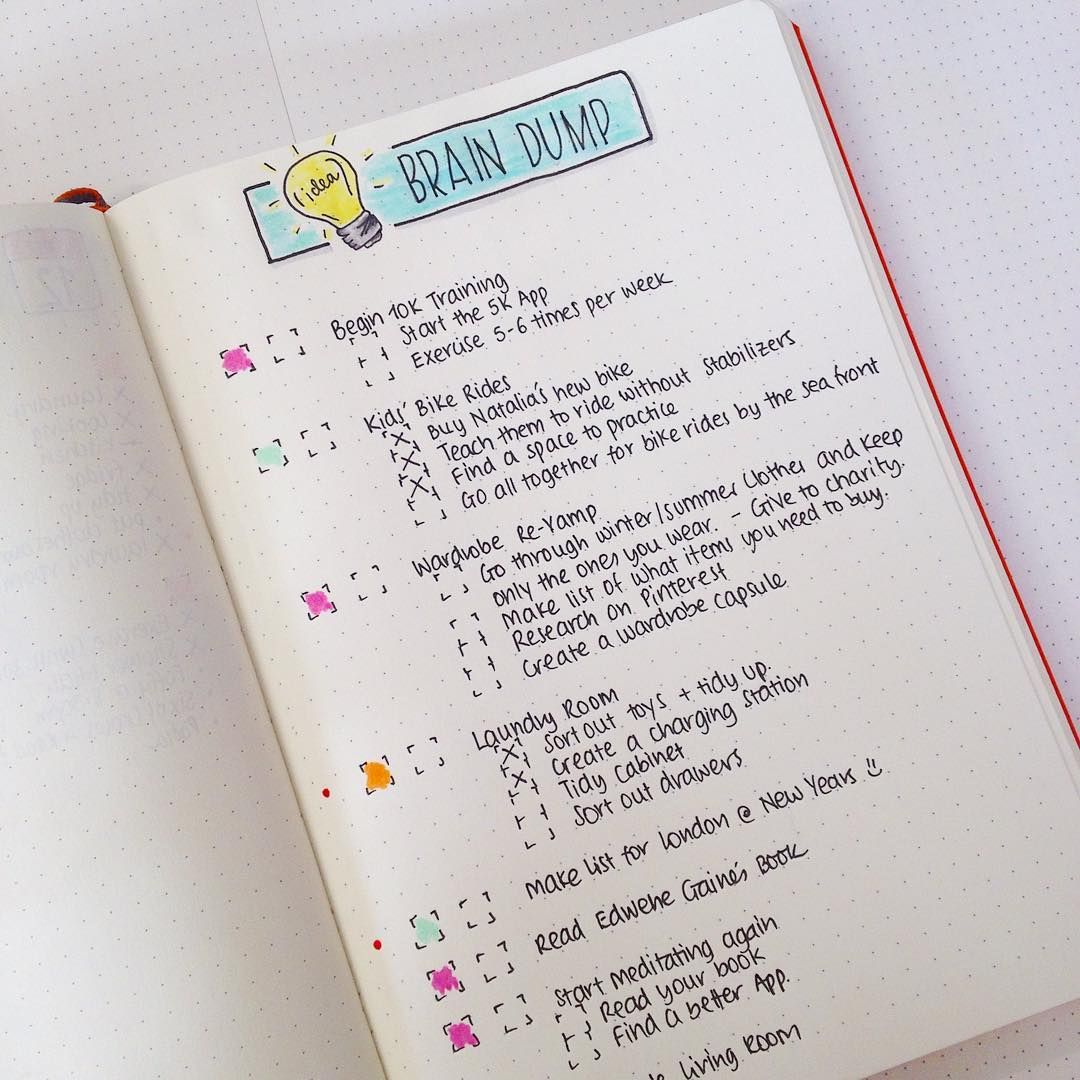 idea
BRAIN DUMP
Begin 10K Training
Start the 5K App
Exercise 5-6 times per week
Kids' Bike Rides
Buy Natalia's new bike
Teach them to ride without stabilizers
Find a space to practice
Go all together for bike rides by the sea front
Wardrobe Re-Vamp
Go through winter/summer clothes and keep
only the ones you wear. - Give to charity.
Make list of what items you need to buy.
Research on Pinterest
Create a wardrobe capsule
Laundry Room
Sort out toys + tidy up.
Create a charging station
Tidy Cabinet
Sort out drawers
Make list for London @ New Years
Read Edwene Gaine's BOOK
Start Meditating again
Read your book
Find a better App.
Living Room
12